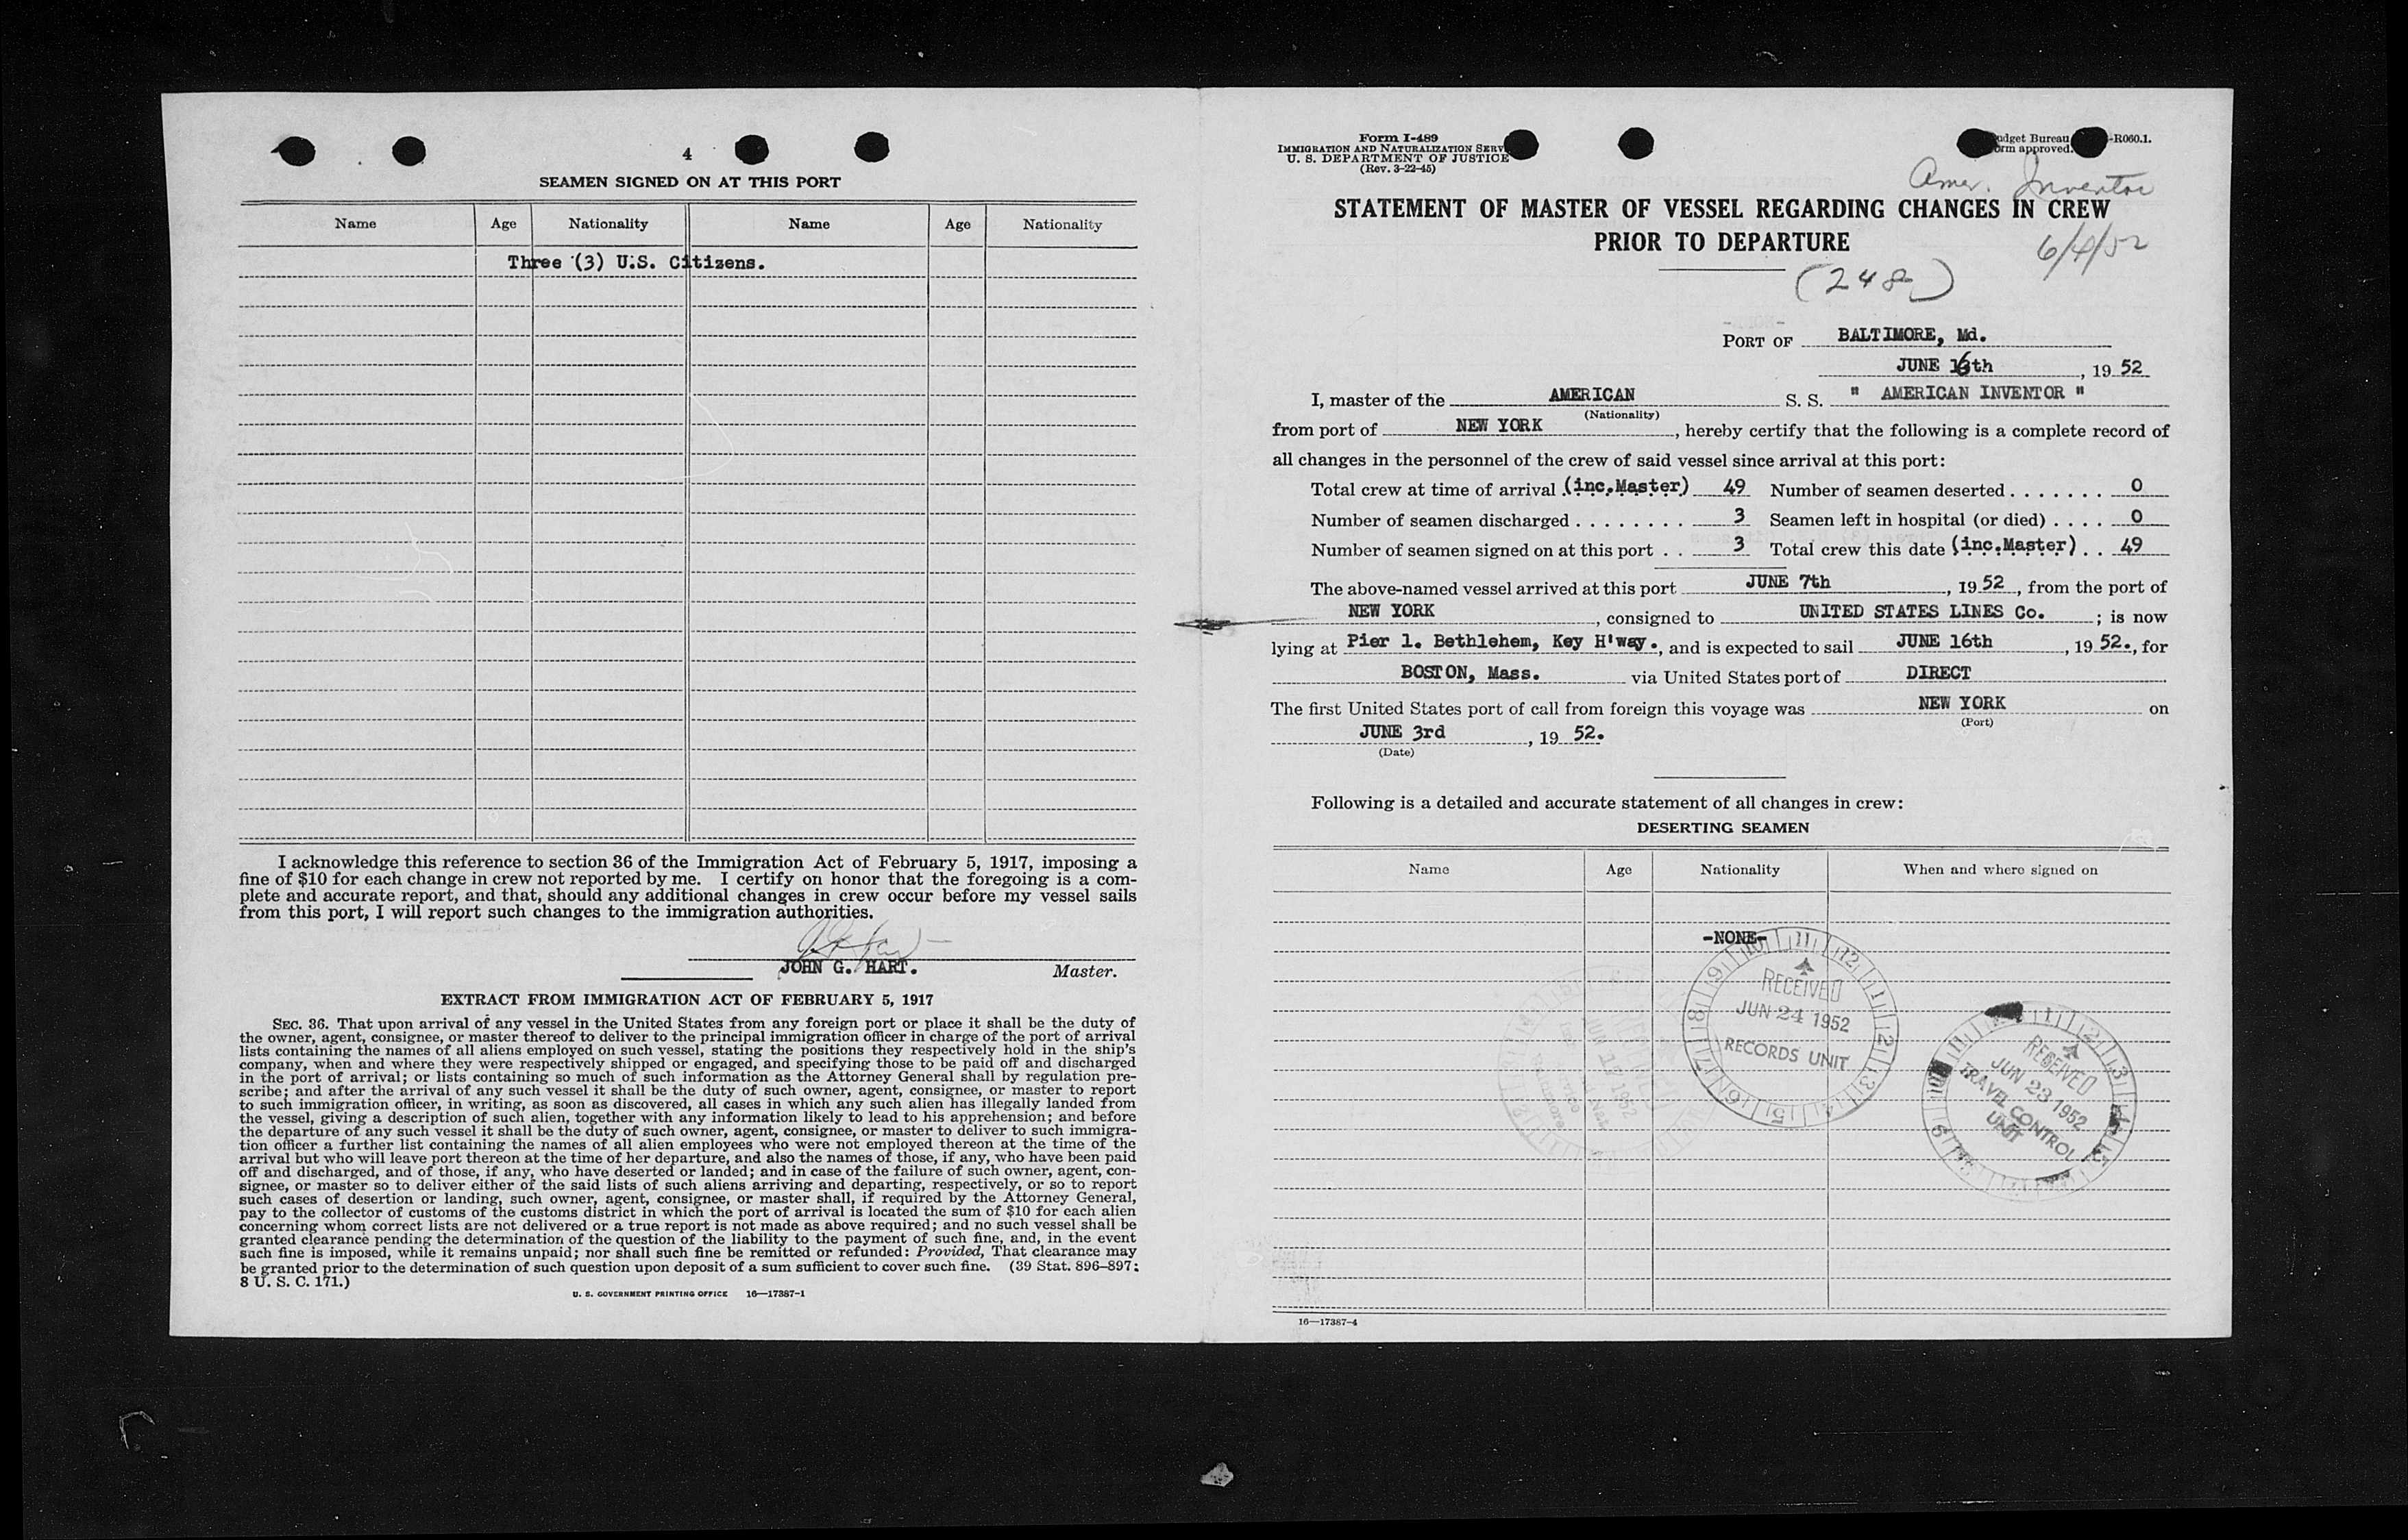 4
SEAMEN SIGNED ON AT THIS PORT
Name Age Nationality Name Age Nationality
Three (3) U.S. Citizens.
I acknowledge this reference to section 36 of the Immigration Act of February 5, 1917, imposing a
fine of $10 for each change in crew not reported by me. I certify on honor that the foregoing is a com-
plete and accurate report, and that, should any additional changes in crew occur before my vessel sails
from this port, I will report such changes to the immigration authorities.
JOHN G. HART. Master.
EXTRACT FROM IMMIGRATION ACT OF FEBRUARY 5, 1917
SEC. 36. That upon arrival of any vessel in the United States from any foreign port or place it shall be the duty of
the owner, agent, consignee, or master thereof to deliver to the principal immigration officer in charge of the port of arrival
lists containing the names of all aliens employed on such vessel, stating the positions they respectively hold in the ship's
company, when and where they were respectively shipped or engaged, and specifying those to be paid off and discharged
in the port of arrival; or lists containing so much of such information as the Attorney General shall by regulation pre-
scribe; and after the arrival of any such vessel it shall be the duty of such owner, agent, consignee, or master to report
to such immigration officer, in writing, as soon as discovered, all cases in which any such alien has illegally landed from
the vessel, giving a description of such alien, together with any information likely to lead to his apprehension; and before
the departure of any such vessel it shall be the duty of such owner, agent, consignee, or master to deliver to such immigra-
tion officer a further list containing the names of all alien employees who were not employed thereon at the time of the
arrival but who will leave port thereon at the time of her departure, and also the names of those, if any, who have been paid
off and discharged, and of those, if any, who have deserted or landed; and in case of the failure of such owner, agent, con-
signee, or master so to deliver either of the said lists of such aliens arriving and departing, respectively, or so to report
such cases of desertion or landing, such owner, agent, consignee, or master shall, if required by the Attorney General,
pay to the collector of customs of the customs district in which the port of arrival is located the sum of $10 for each alien
concerning whom correct lists are not delivered or a true report is not made as above required; and no such vessel shall be
granted clearance pending the determination of the question of the liability to the payment of such fine, and, in the event
such fine is imposed, while it remains unpaid; nor shall such fine be remitted or refunded: Provided, That clearance may
be granted prior to the determination of such question upon deposit of a sum sufficient to cover such fine. (39 Stat. 896–897;
8 U. S. C. 171.)
U. S. GOVERNMENT PRINTING OFFICE 16—17387-1
Form I-489
IMMIGRATION AND NATURALIZATION SERV
U. S. DEPARTMENT OF JUSTICE
(Rev. 3-22-45)
udget Bureau -R060.1.
orm approved.
Amer. Inventor
STATEMENT OF MASTER OF VESSEL REGARDING CHANGES IN CREW
PRIOR TO DEPARTURE
6/4/52
(248)
PORT OF BALTIMORE, Md.
JUNE 16th, 19 52
I, master of the AMERICAN S. S. " AMERICAN INVENTOR "
(Nationality)
from port of NEW YORK, hereby certify that the following is a complete record of
all changes in the personnel of the crew of said vessel since arrival at this port:
Total crew at time of arrival (inc.Master) 49 Number of seamen deserted . . . . . . . 0
Number of seamen discharged . . . . . . . . 3 Seamen left in hospital (or died) . . . . 0
Number of seamen signed on at this port . . 3 Total crew this date (inc.Master) . . 49
The above-named vessel arrived at this port JUNE 7th, 19 52, from the port of
NEW YORK, consigned to UNITED STATES LINES Co. ; is now
lying at Pier 1. Bethlehem, Key H'way., and is expected to sail JUNE 16th, 19 52., for
BOSTON, Mass. via United States port of DIRECT
The first United States port of call from foreign this voyage was NEW YORK on
(Port)
JUNE 3rd, 19 52.
(Date)
Following is a detailed and accurate statement of all changes in crew:
DESERTING SEAMEN
Name Age Nationality When and where signed on
-NONE-
RECEIVED
JUN 24 1952
RECORDS UNIT
RECEIVED
JUN 23 1952
TRAVEL CONTROL
UNIT
JUN 17 1952
16—17387-4